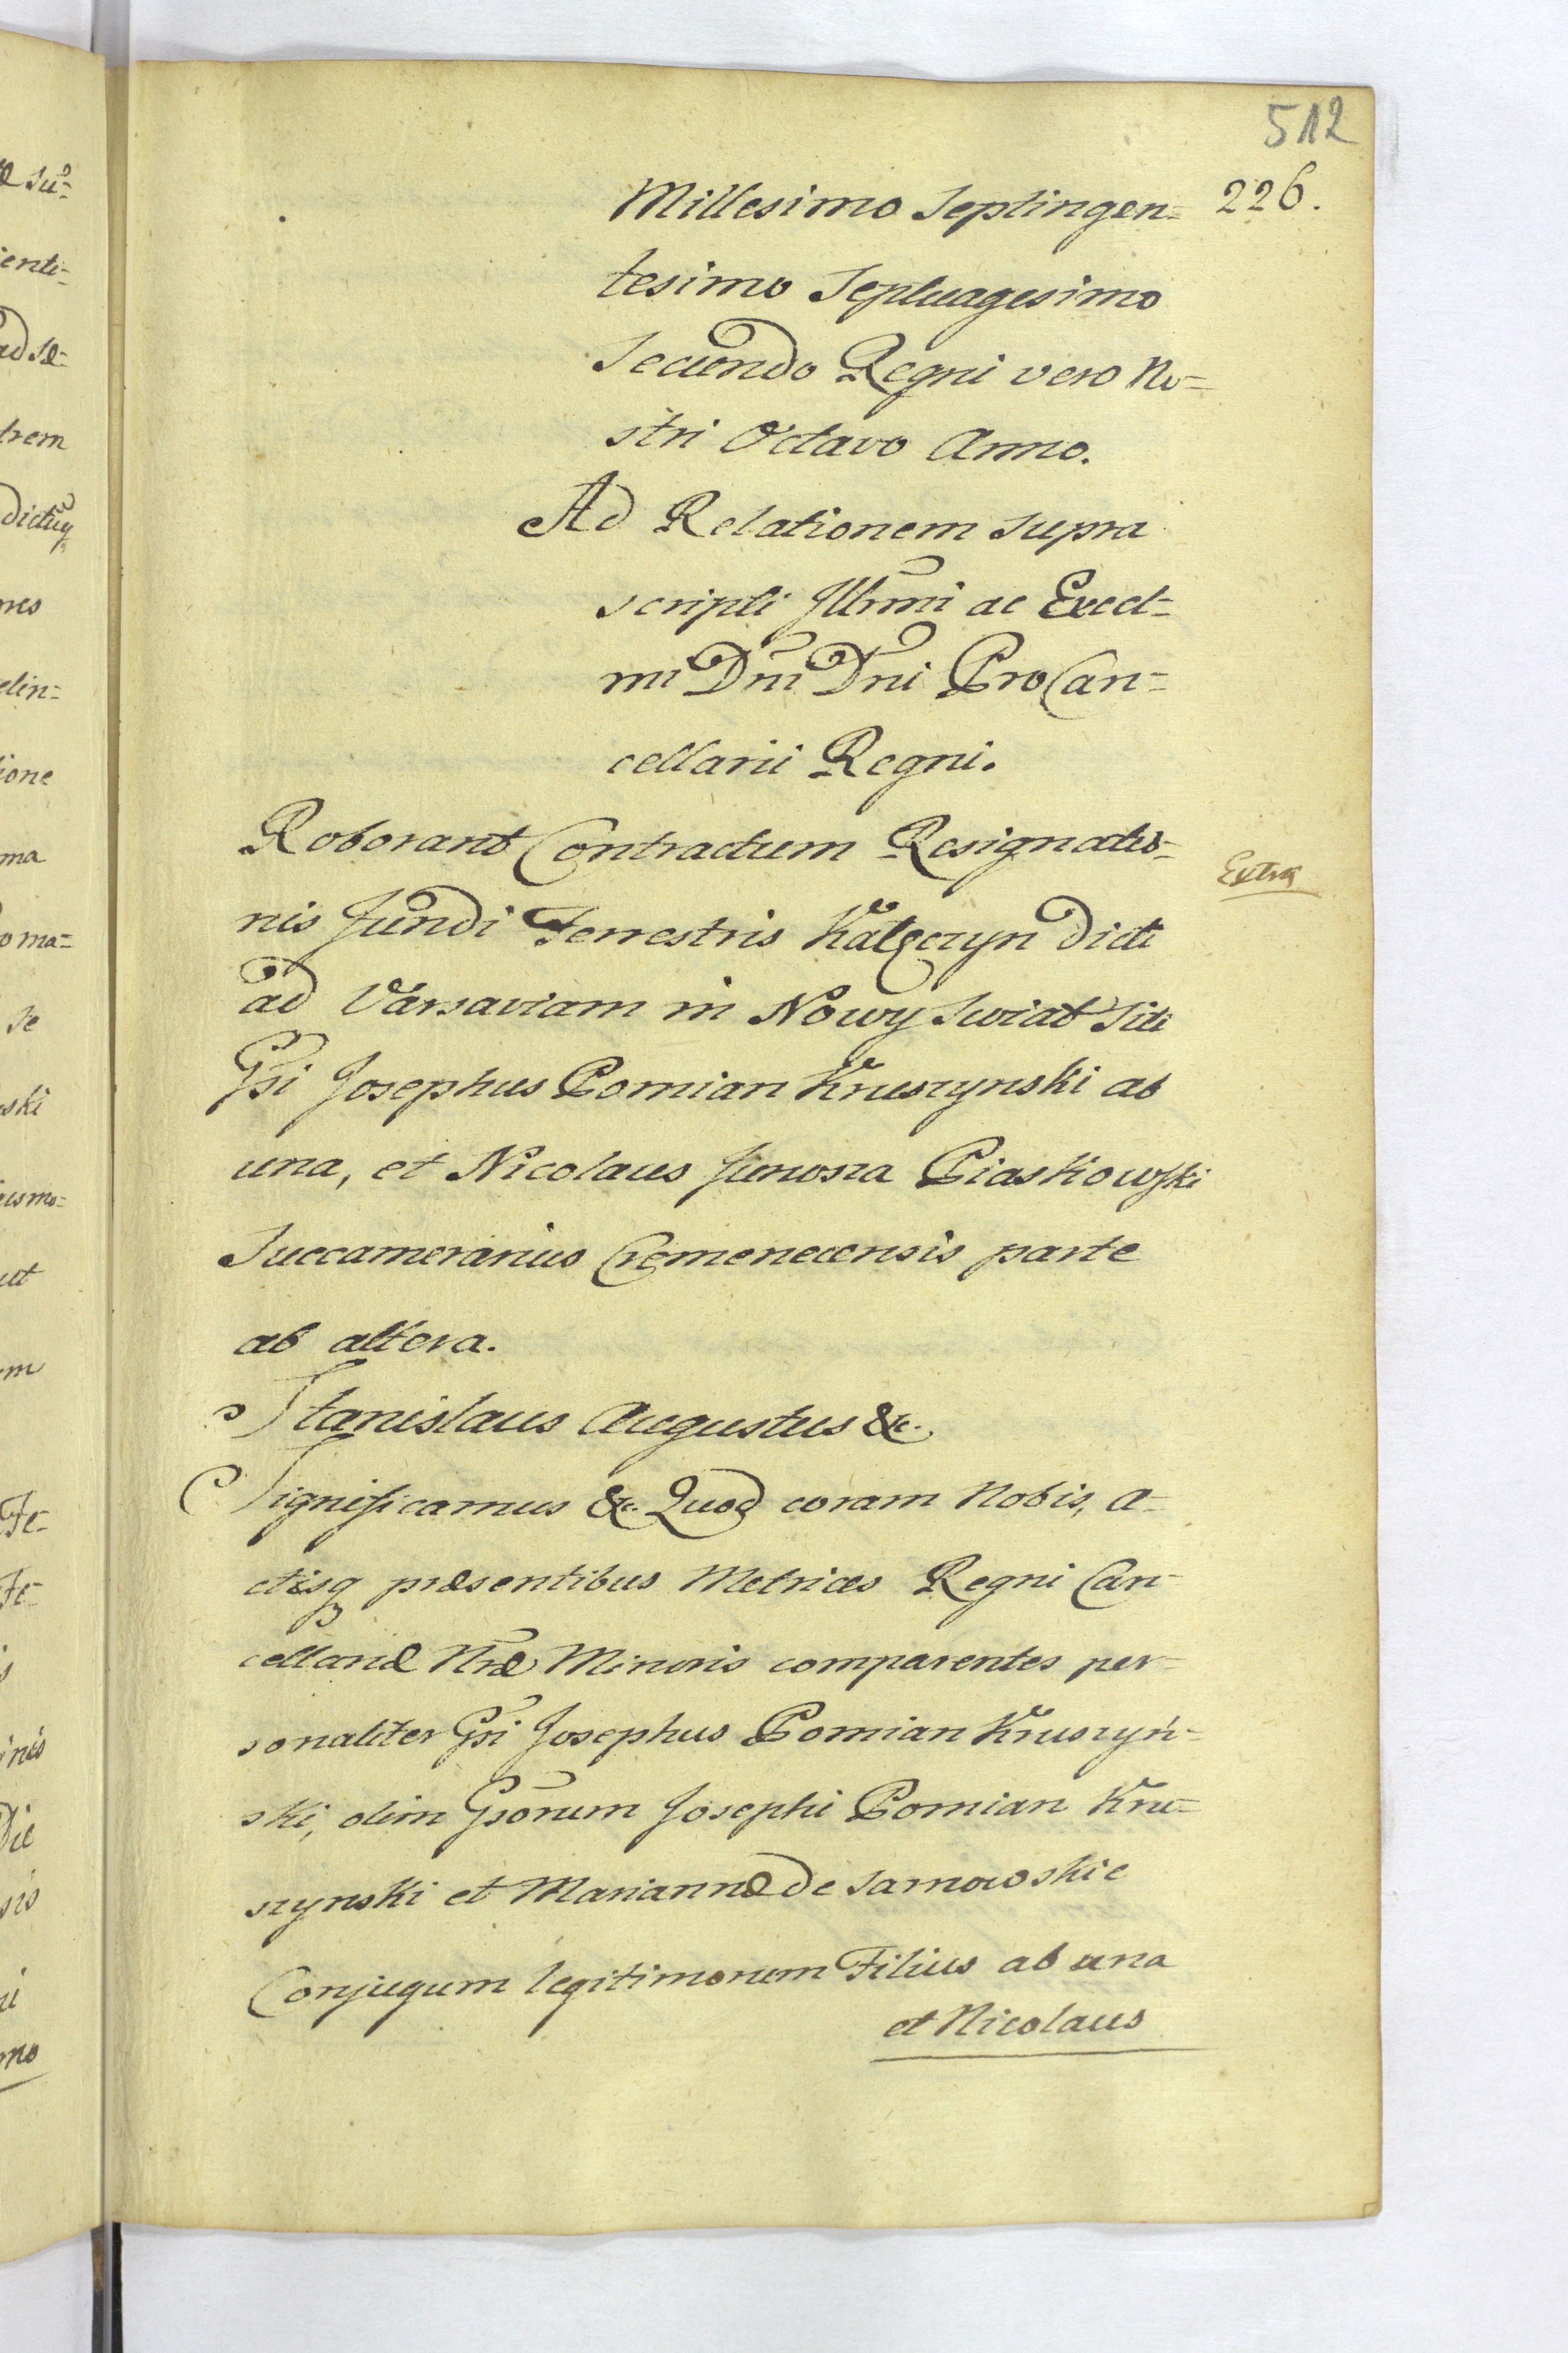 512
226.
Millesimo Septingen=
tesimo Septuagesimo
Secundo Regni vero No=
stri Octavo Anno.
Ad Relationem supra
scripti Jllrmi ac Excel=
mi Dni Dni ProCan=
cellarii Regni.
Roborant Contractum Resignatio=
Extra
nis fundi Terrestris Kalęczyn dicti
ad Varsaviam in Nowy Swiat Siti
Gsi Josephus Pomian Kruszynski ab
una, et Nicolaus Junosza Piaskowski
Succamerarius Cremenecensis parte
ab altera.
Stanislaus Augustus &c.
Significamus &c. Quod coram Nobis, A=
ctisq præsentibus Metrices Regni Can=
cellariæ Nræ Minoris comparentes per=
sonaliter Gsi Josephus Pomian Kruszyń=
ski, olim Gsorum Josephi Pomian Kru=
szynski et Mariannæ de Sarnowskie
Conjugum legitimorum Filius ab una
et Nicolaus